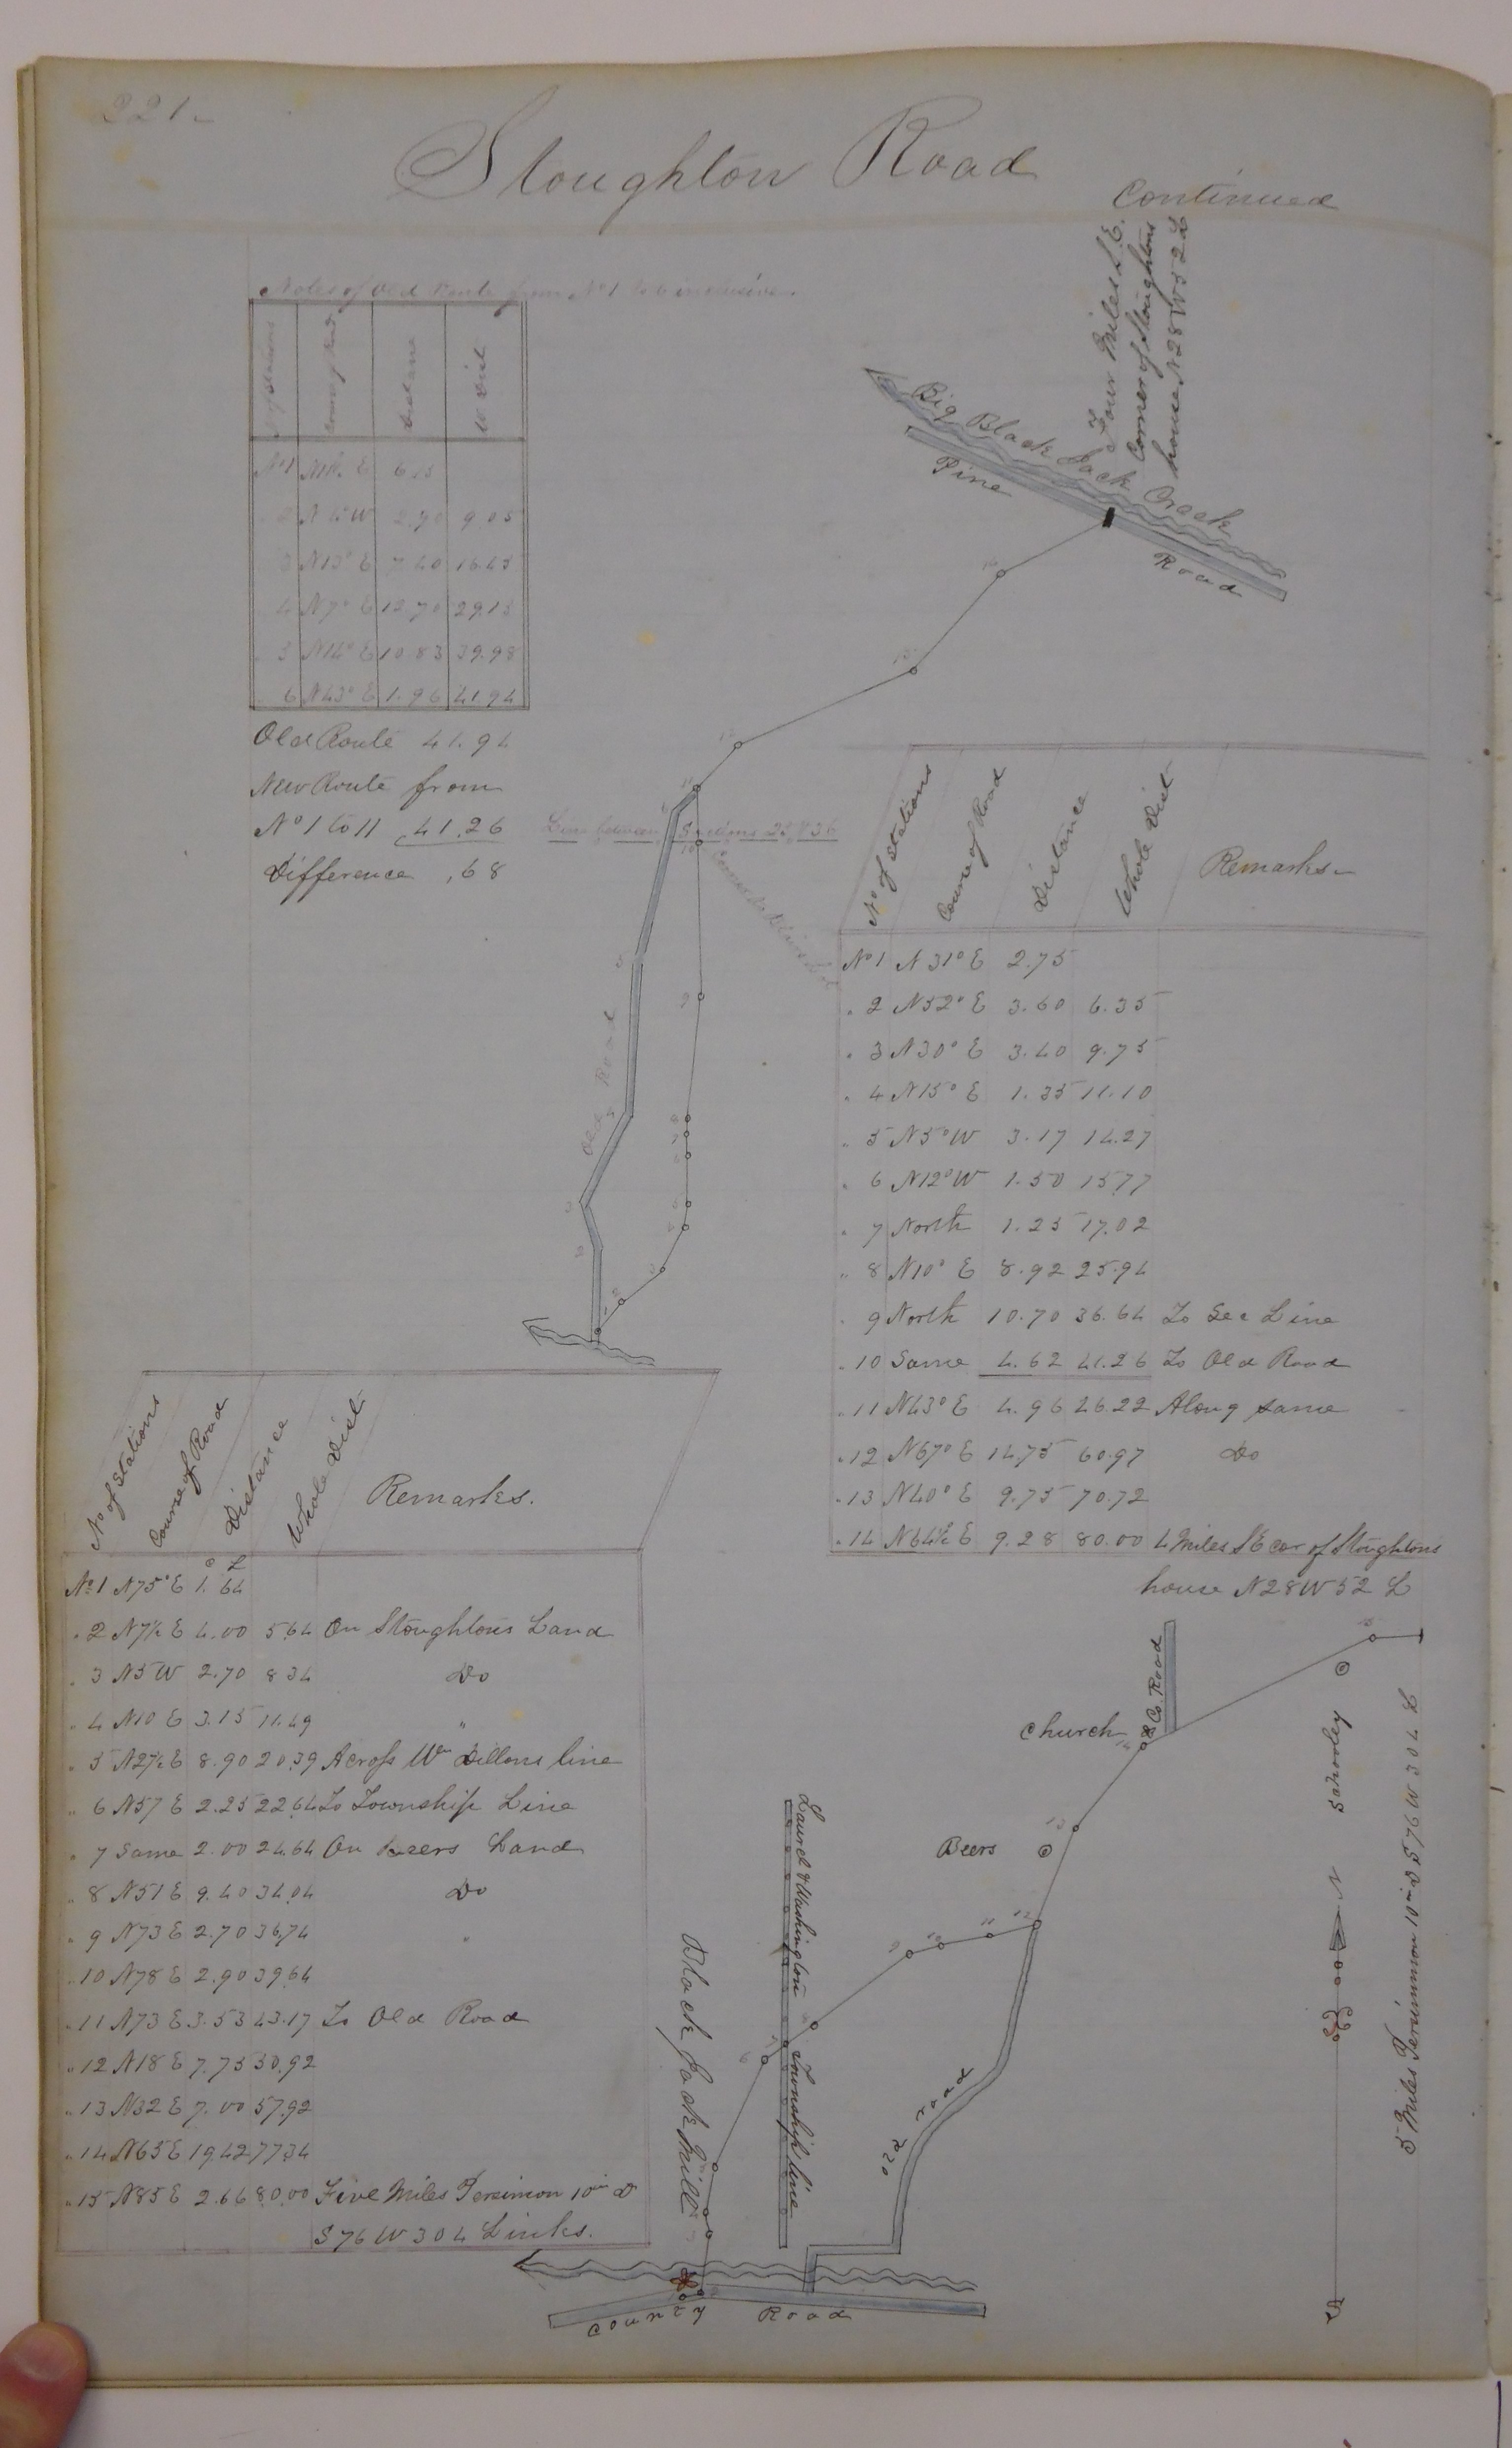 221-
Stoughton Road
Continued
Notes of Old Route from No 1 to 6 inclusive
No of Stations | Course of Road | Distance | W Dist
No 1 | E | 6.15
2 | W | 2.90 | 9.05
3 | N13° E | 7.40 | 16.45
4 | N7° E | 12.70 | 29.15
5 | N14° E | 10.83 | 39.98
6 | N43° E | 1.96 | 41.94
Old Route 41.94
New Route from
No 1 to 11 41.26
Difference ,68
Four Miles S.E.
Corner of Stoughtons
house N28W 52 L
Big Black Jack Creek
Pine Road
15
12
11
Line between Sections 25 & 36
10
9
Old Road
No of Stations | Course of Road | Distance | Whole Dist | Remarks-
No 1 N31° E 2.75
" 2 N52° E 3.60 6.35
" 3 N30° E 3.40 9.75
" 4 N15° E 1.35 11.10
" 5 N5° W 3.17 14.27
" 6 N12° W 1.50 15.77
" 7 North 1.25 17.02
" 8 N10° E 8.92 25.94
" 9 North 10.70 36.64 To Sec Line
" 10 Same 4.62 41.26 To Old Road
" 11 N43° E 4.96 46.22 Along same
" 12 N67° E 14.75 60.97 Do
" 13 N40° E 9.75 70.72
" 14 N64½ E 9.28 80.00 4 Miles S E cor of Stoughtons
house N28W 52 L
No of Stations | Course of Road | Distance | Whole Dist. | Remarks.
C L
No 1 N75° E 1.64
" 2 N7½ E 4.00 5.64 On Stoughtons Land
" 3 N5 W 2.70 8 34 Do
" 4 N10 E 3.15 11.49 "
" 5 N27½ E 8.90 20.39 Across Wm Dillons line
" 6 N57 E 2.25 22.64 To Township Line
" 7 Same 2.00 24.64 On Beers Land
" 8 N51 E 9.40 34.04 Do
" 9 N73 E 2.70 36.74 "
" 10 N78 E 2.90 39.64
" 11 N73 E 3.53 43.17 To Old Road
" 12 N18 E 7.75 50.92
" 13 N32 E 7.00 57.92
" 14 N65 E 19.42 77.34
" 15 N85 E 2.66 80.00 Five Miles Persimon 10 in D
S 76 W 304 Links.
Church
Co. Road
15
Schooley
13
Beers
12
11
10
9
Laurel & Washington
Township line
Black Jack Mill
old road
N
S
5 Miles Persimmon 10 in D S 76 W 304 L
County Road